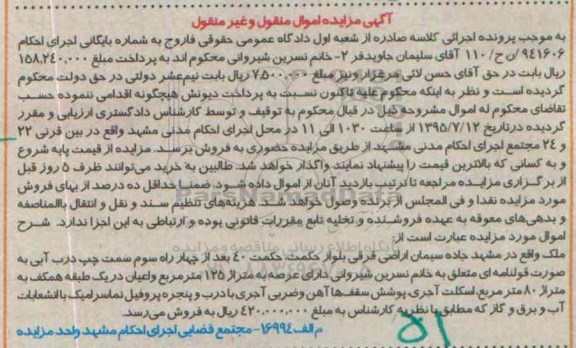 آگهی مزایده اموال منقول و غیر منقول
به موجب پرونده اجرائی کلاسه صادره از شعبه اول دادگاه عمومی حقوقی فاروج به شماره بایگانی اجرای احکام
۹۴۱۶۰۶ /ن ح/ ۱۱۰ آقای سلیمان جاویدفر ۲- خانم نسرین شیروانی محکوم اند به پرداخت مبلغ ۱۵۸,۲۴۰,۰۰۰
ریال بابت در حق آقای حسن لائی مرغزار و نیز مبلغ ۷,۵۰۰,۰۰۰ ریال بابت نیم عشر دولتی در حق دولت محکوم
گردیده است و نظر به اینکه محکوم علیه تاکنون نسبت به پرداخت دیونش هیچگونه اقدامی ننموده حسب
تقاضای محکوم له اموال مشروحه ذیل در قبال محکوم به توقیف و توسط کارشناس دادگستری ارزیابی و مقرر
گردیده در تاریخ ۱۳۹۵/۷/۱۲ از ساعت ۱۰:۳۰ الی ۱۱ در محل اجرای احکام مدنی مشهد واقع در بین قرنی ۲۲
و ۲۴ مجتمع اجرای احکام مدنی مشهد از طریق مزایده حضوری به فروش برسد. مزایده از قیمت پایه شروع
و به کسانی که بالاترین قیمت را پیشنهاد نمایند واگذار خواهد شد. طالبین به خرید می‌توانند ظرف ۵ روز قبل
از برگزاری مزایده مراجعه تا ترتیب بازدید آنان از اموال داده شود. ضمنا حداقل ده درصد از بهای فروش
مورد مزایده نقدا و فی المجلس از برنده وصول خواهد شد. هزینه‌های تنظیم سند و نقل و انتقال بالمناصفه
و بدهی‌های معوقه به عهده فروشنده و تخلیه تابع مقررات قانونی بوده و ارتباطی به این اجرا ندارد. شرح
اموال مورد مزایده عبارت است از:
ملک واقع در مشهد جاده سیمان اراضی قرقی بلوار حکمت، حکمت ۴۰ بعد از چهار راه سوم سمت چپ درب آبی به
صورت قولنامه ای متعلق به خانم نسرین شیروانی دارای عرصه به متراژ ۱۲۵ مترمربع واعیان در یک طبقه همکف به
متراژ ۸۰ متر مربع، اسکلت آجری، پوشش سقف‌ها آهن وضربی آجری با درب و پنجره پروفیل نماسرامیک با انشعابات
آب و برق و گاز که مطابق با نظریه کارشناس به مبلغ ۴۲۰,۰۰۰,۰۰۰ ریال به فروش می‌رسد.
م الف ۱۶۹۹۴- مجتمع قضایی اجرای احکام مشهد واحد مزایده